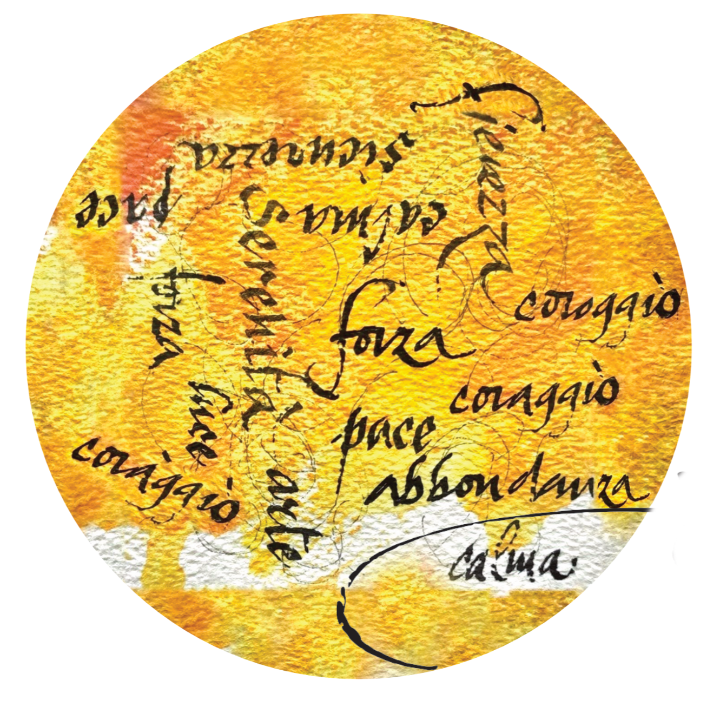 fierezza
sicurezza
pace
calma
serenità
forza
coraggiò
forza
coraggiò
luce
pace
coràggiò
arte
abbondanza
calma